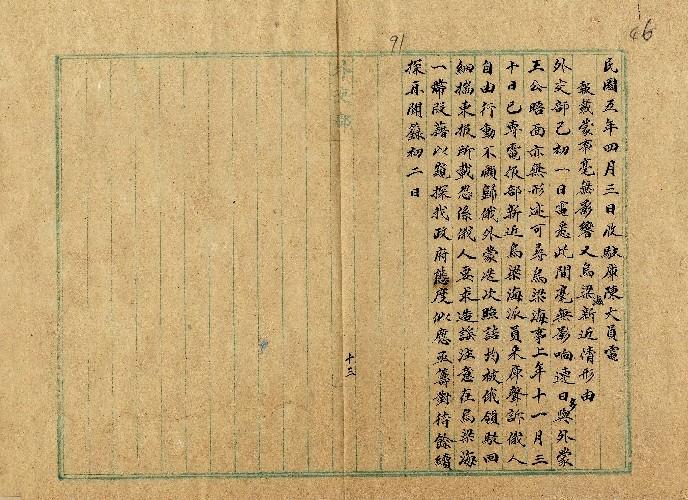 46
91
民國五年四月三日收駐庫陳大員電
報載蒙事毫無影響又烏梁海新近情形由
外交部己初一日電悉此間毫無影响連日與外蒙
王公晤面亦無形迹可尋烏梁海事上年十一月三
十日已專電報部新近烏梁海派員來庫聲訴俄人
自由行動不願歸俄外蒙迭次照詰均被俄領駁回
細揣東報所載恐係俄人要求造謠注意在烏梁海
一帶故藉以窺探我政府態度似應亟籌對待餘續
探再聞籙初二日
外交部
十三